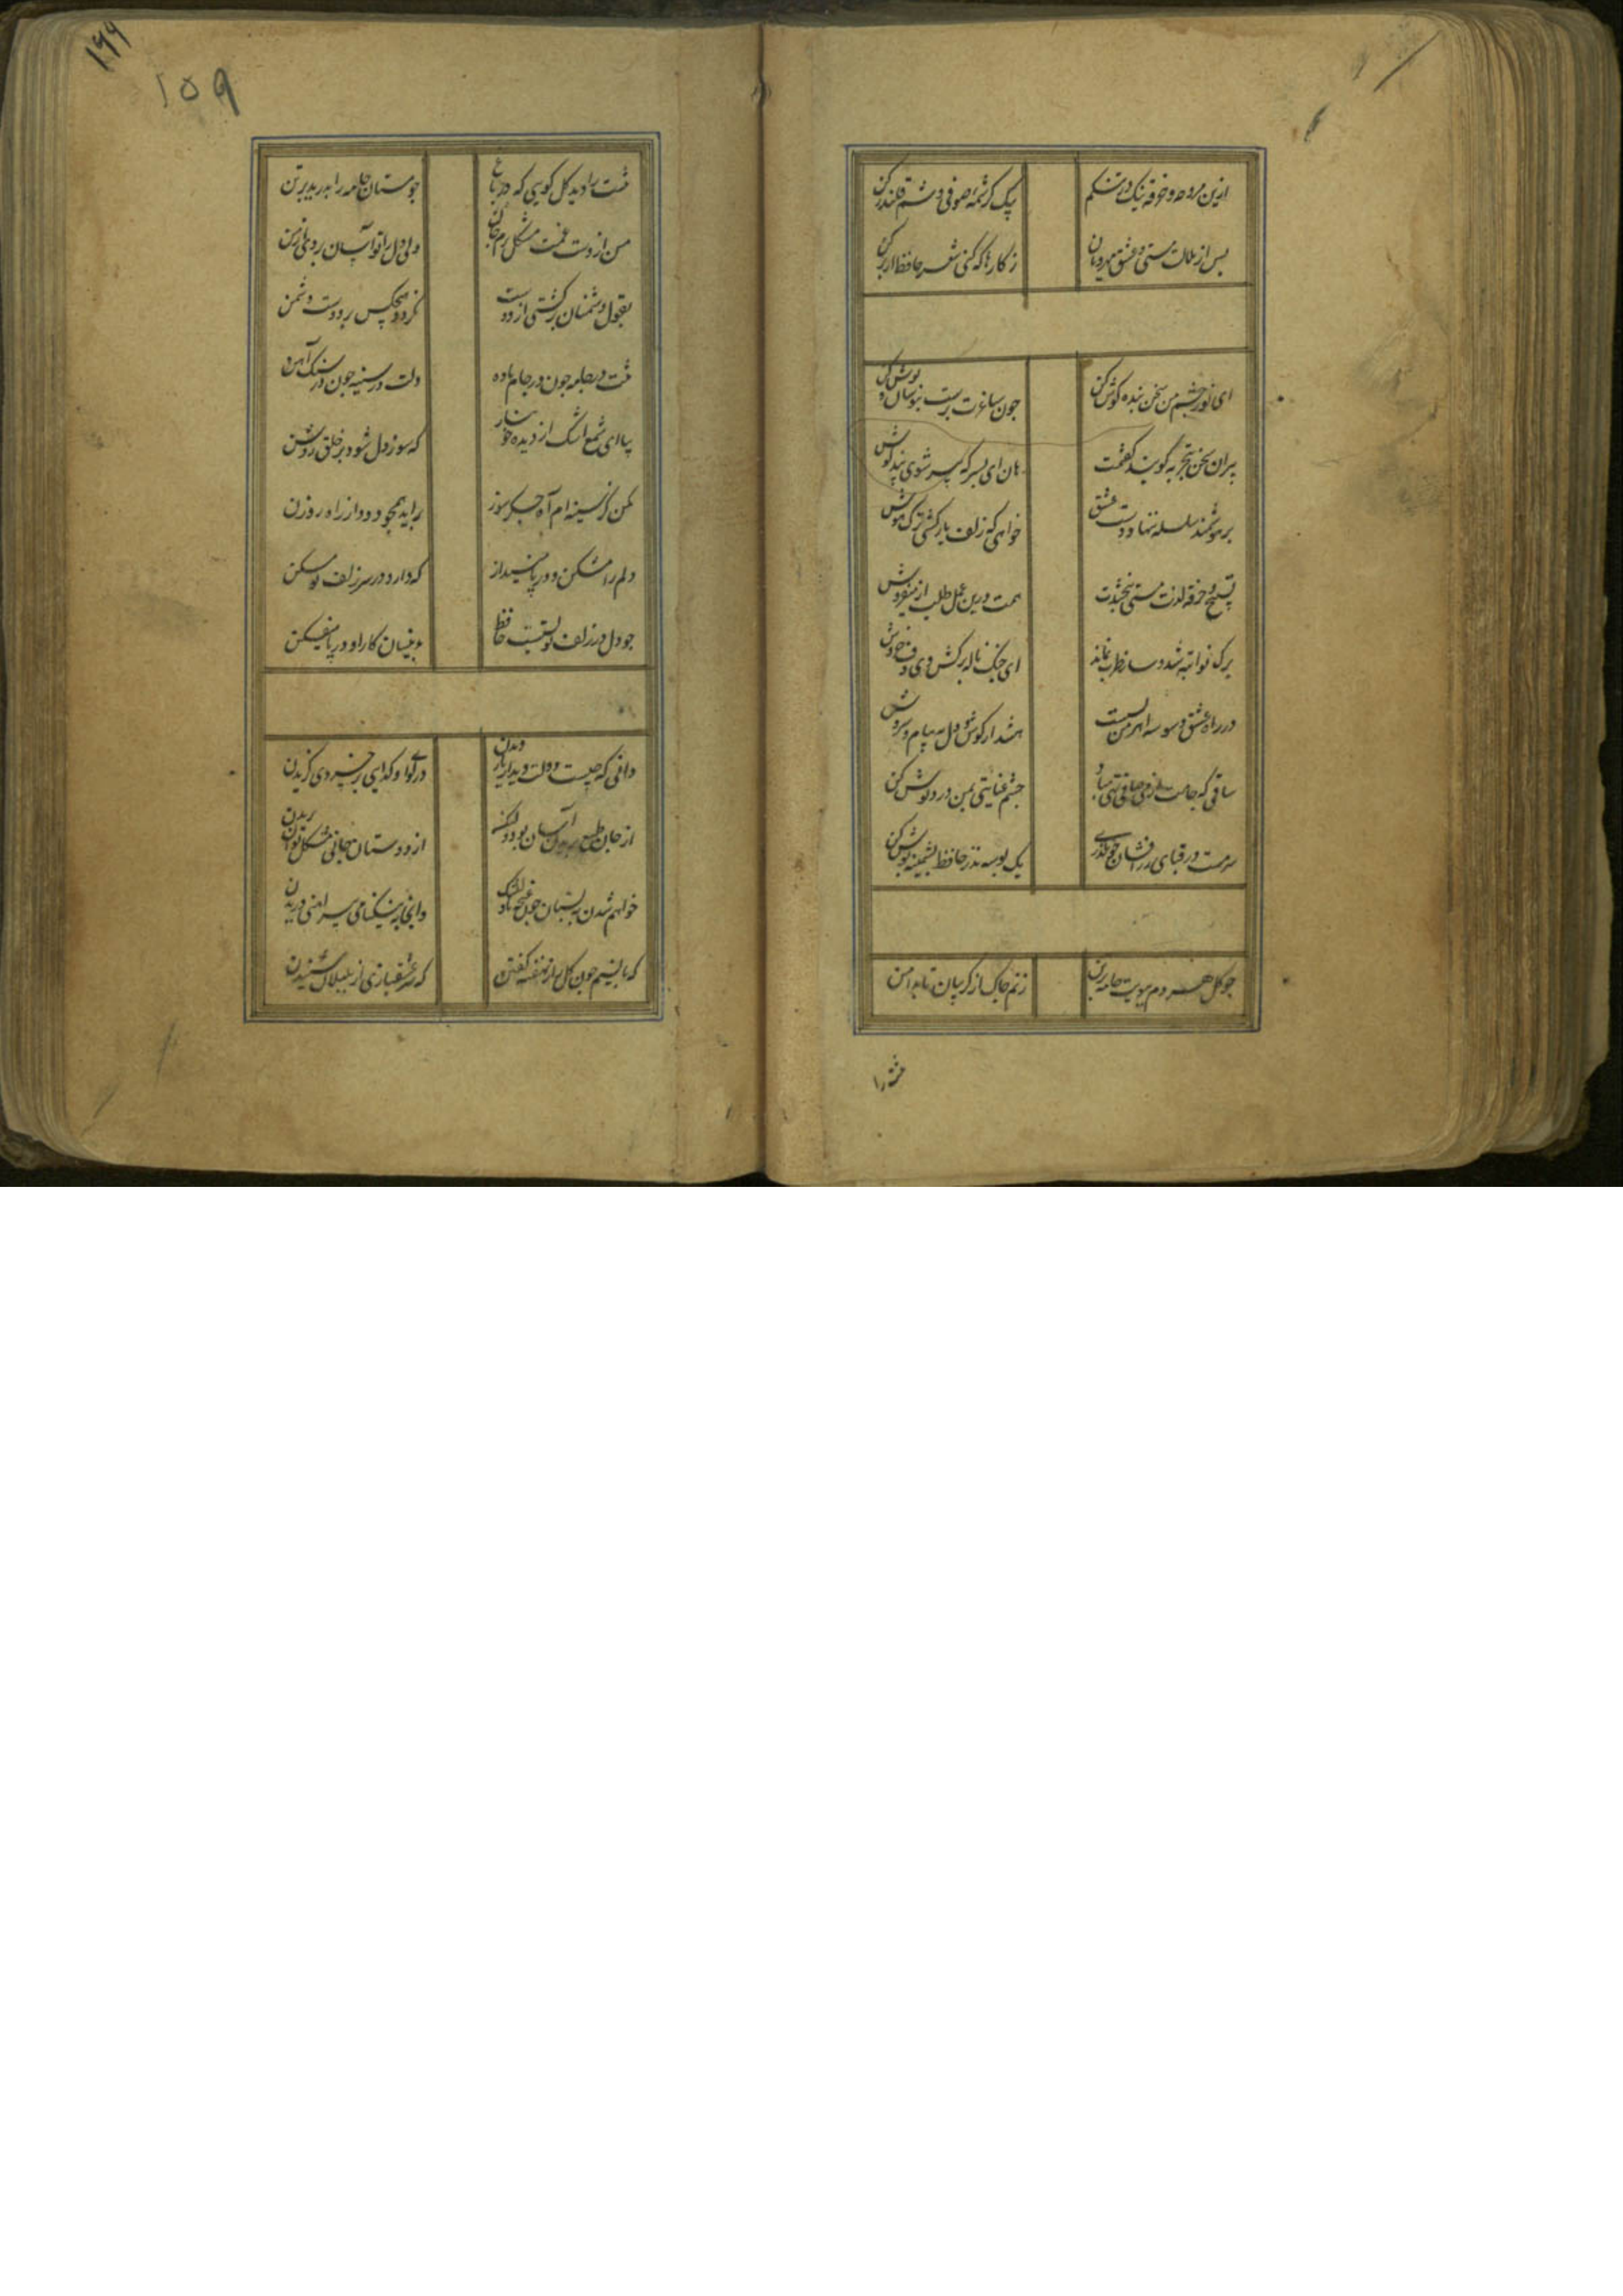 ازین مزوجه و خرقه نیک در تنکم
بیک کرشمه صوفی وشم قلندر کن
پس از ملازمت مستی و عشق مهرویان
ز کارها که کنی شعر حافظ از بر کن
ای نور چشم من سخن بنده کوش کن
جون ساغرت پرست بنوشان و نوش کن
پیران سخن بتجربه کویند کفتمت
هان ای پسر که پیر شوی پند کوش
بر هوشمند سلسله ننهاد دست عشق
خواهی که زلف یار کشی ترک هوش
تسبیح و خرقه لذت مستی نبخشدت
همت درین عمل طلب از میفروش
برک نوا تبه شد و ساز طرب نماند
ای جنک ناله برکش و ای دف خروش
در راه عشق وسوسه اهرمن بسیست
هشدار و کوش دل به پیام سروش
ساقی که جامت از می صافی تهی مباد
جشم عنایتی بمن درد نوش کن
سرمست در قبای زر افشان جو بکذری
یک بوسه نذر حافظ پشمینه پوش کن
جو کل هر دم ببویت جامه بر تن
زنم جاک از کریبان تا بدامن
تنت را
۱۵۹
تنت را دید کل کویی که در باغ
جو مستان جامه را بدرید بر تن
من از دست غمت مشکل برم جان
ولی دل را تو آسان بردی از من
بقول دشمنان برکشتی از دوست
نکردد هیجکس بر دوست دشمن
تنت در جامه جون در جام باده
دلت در سینه جون در سنک آهن
ببار ای شمع اشک از دیده خونبار
که سوز دل شود بر خلق روشن
مکن کز سینه ام آه جکر سوز
برآید همجو دود از راه روزن
دلم را مشکن و در پا مینداز
که دارد در سر زلف تو مسکن
جو دل در زلف تو بستست حافظ
بدینسان کار او در پا میفکن
دانی که جیست دولت دیدار یار دیدن
در کوی او کدایی بر خسروی کزیدن
از جان طمع بریدن آسان بود ولیکن
از دوستان جانی مشکل توان بریدن
خواهم شدن به بستان جون غنجه با دل تنک
وانجا به نیکنامی پیراهنی دریدن
که با نسیم جون کل راز نهفته کفتن
که سر عشقبازی از بلبلان شنیدن